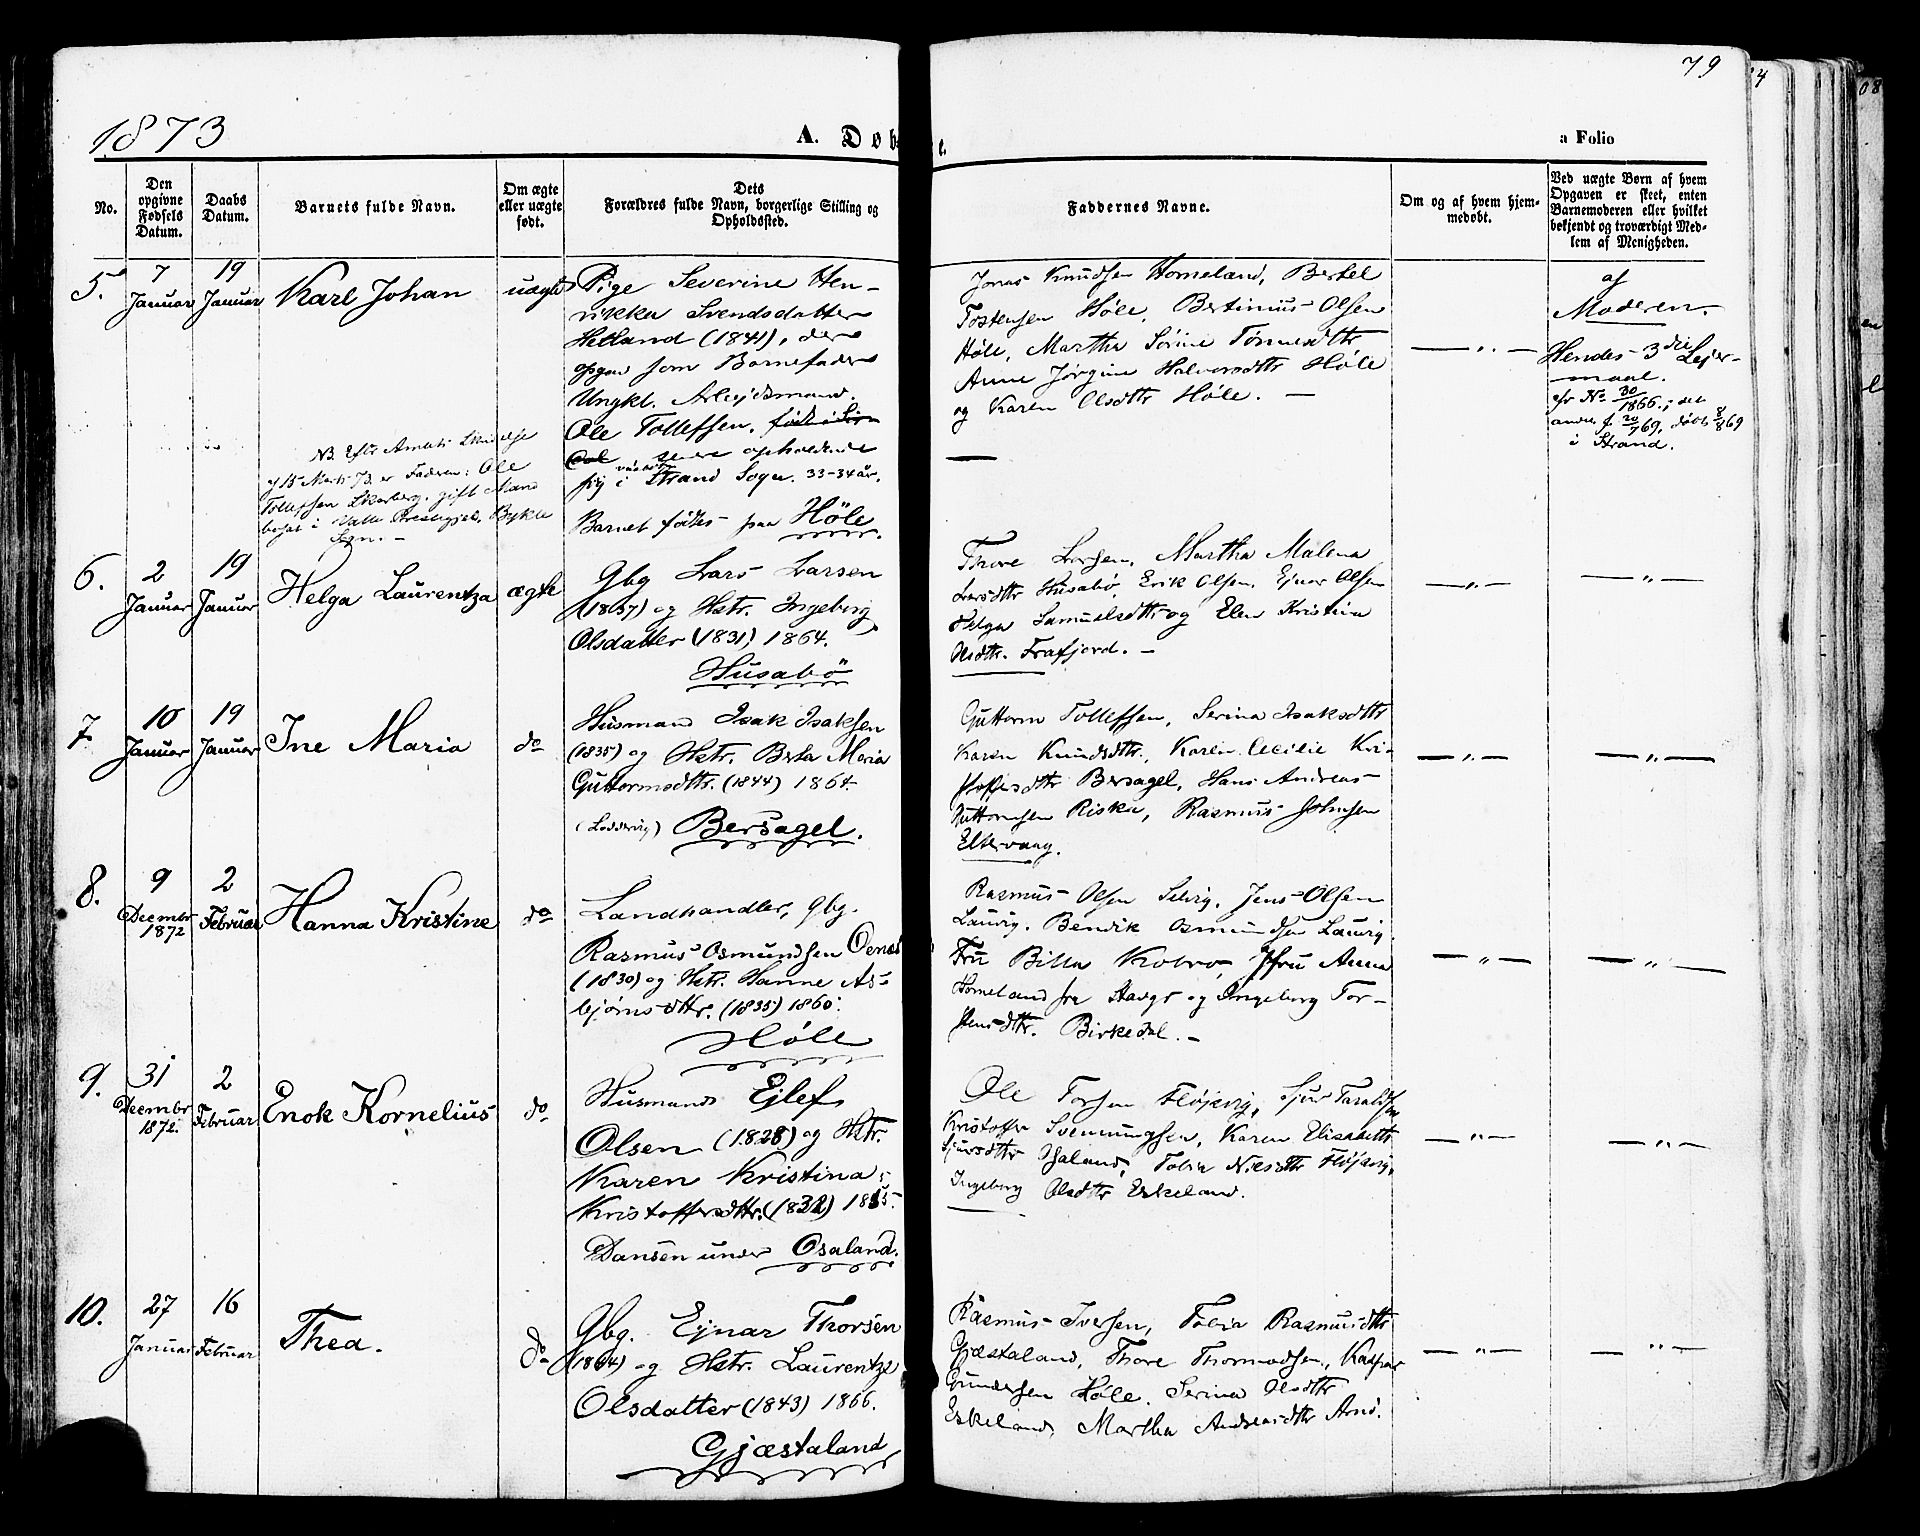 79
1873
A. Døb
e.
a Folio
No.
Den opgivne Fødsels Datum.
Daabs Datum.
Barnets fulde Navn.
Om ægte eller uægte født.
Dets Forældres fulde Navn, borgerlige Stilling og Opholdssted.
Faddernes Navne.
Om og af hvem hjemmedøbt.
Ved uægte Børn af hvem Opgaven er skeet, enten Barnemoderen eller hvilket bekjendt og troværdigt Medlem af Menigheden.
5.
7 Januar
19 Januar
Karl Johan
uægte
Pige Severine Hen-
rikka Svendsdatter
Hetland (1841), der
opgav som Barnefader
Ungkl. Arbejdsmand.
Ole Tollefsen,
opholdende
sig i Strand Sogn. 33-34 år.
Barnet fødtes paa Høle.
NB. Efter Amtets Skrivelse
af 15 Marts 73 er Faderen: Ole
Tollefsen Skarberg, gift Mand
bosat i Valle Præstegjeld, Bykle
Sogn. –
Jonas Knudsen Homeland, Bertel
Tostensen Høle, Bertinius Olsen
Høle, Martha Sørine Tønnesdtr
Anne Jørgine Halvorsdtr Høle
og Karen Olsdtr Høle. –
— " —
af
Moderen.
Hendes 3die Lejer-
maal.
cfr No 30/1866; det
andet f. 20/7 69, døbt 8/8 69
i Strand.
6.
2 Januar
19 Januar
Helga Laurentza
ægte
Gbg Lars Larsen
(1837) og Hstr. Ingeborg
Olsdatter (1831) 1864.
Husabö
Thore Larsen, Martha Malena
Larsdtr Husabö, Erik Olsen, Ejnar Olsen
Helga Samuelsdtr og Elen Kristina
Olsdtr. Frafjord. –
— " —
— " —
7.
10 Januar
19 Januar
Ine Maria
do
Husmand Isak Isaksen
(1835) og Hstr. Berta Maria
Guttormsdttr. (1844) 1864.
(Loddevig) Bersagel.
Guttorm Tollefsen, Serina Isaksdttr
Karen Knudsdttr., Karen Cecilie Kri-
stoffersdttr Bersagel, Hans Andreas
Guttormsen Riska, Rasmus Johnsen
Eltervaag.
— " —
— " —
8.
9 Decembr 1872
2 Februar
Hanna Kristine
do
Landhandler, gbg.
Rasmus Osmundsen Oenæs
(1830) og Hstr. Hanne As-
bjørnsdttr. (1835) 1860.
Høle
Rasmus Olsen Selvig, Jens Olsen
Lauvig, Bendik Osmundsen Lauvig
Fru Billa Kobro, Fru Anna
Homeland fra Stavgr og Ingeborg Tor-
stensdttr. Birkedal. –
— " —
— " —
9.
31 Decembr 1872.
2 Februar
Enok Kornelius
do
Husmand Ejlef
Olsen (1828) og Hstr.
Karen Kristina
Kristoffersdttr. (1832) 1855.
Dansen under Osaland.
Ole Torsen Fløjsvig, Sjur Taraldsen
Kristoffer Svenningsen, Karen Elisabeth
Sjursdttr Osaland, Tobia Nilsdttr Fløjsvig,
Ingeborg Olsdttr Eskeland.
— " —
— " —
10.
27 Januar
16 Februar
Thea.
do
Gbg. Ejnar Thorsen
(1864) og Hstr. Laurentze
Olsdatter (1843) 1866.
Gjæstaland
Rasmus Iversen, Tobia Rasmusdttr
Gjæstaland, Thore Thormodsen, Kaspar
Gundersen Høle. Serina Olsdttr
Eskeland, Martha Andreasdttr Arnö.
— " —
— " —